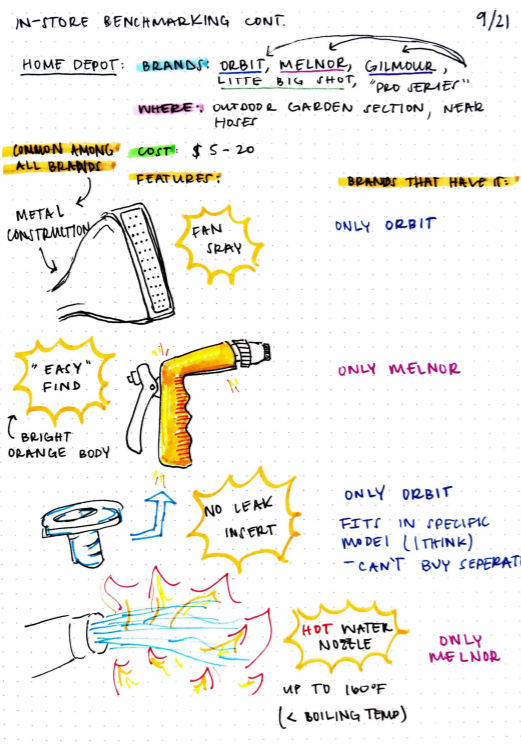 IN-STORE BENCHMARKING CONT.
9/21
HOME DEPOT: BRANDS: ORBIT, MELNOR, GILMOUR,
LITTE BIG SHOT, "PRO SERIES"
WHERE: OUTDOOR GARDEN SECTION, NEAR
HOSES
COMMON AMONG
ALL BRANDS
COST: $ 5-20
FEATURES:
BRANDS THAT HAVE IT:
METAL
CONSTRUCTION
FAN
SRAY
ONLY ORBIT
"EASY"
FIND
BRIGHT
ORANGE BODY
ONLY MELNOR
NO LEAK
INSERT
ONLY ORBIT
FITS IN SPECIFIC
MODEL (I THINK)
- CAN'T BUY SEPERATE
HOT WATER
NOZZLE
UP TO 160°F
(< BOILING TEMP)
ONLY
MELNOR